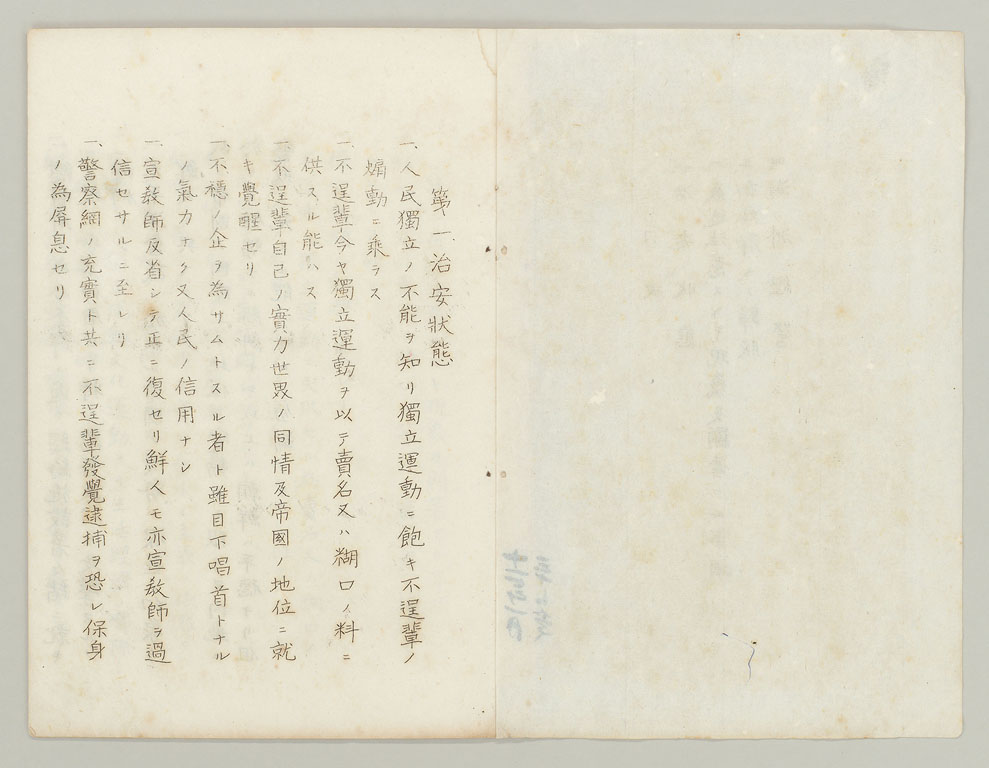 第一、治安狀態
一、人民獨立ノ不能ヲ知リ獨立運動ニ飽キ不逞輩ノ
煽動ニ乘ラス
一、不逞輩今ヤ獨立運動ヲ以テ賣名又ハ糊口ノ料ニ
供スル能ハス
一、不逞輩自己ノ實力世界ノ同情及帝國ノ地位ニ就
キ覺醒セリ
一、不穩ノ企ヲ為サムトスル者ト雖目下唱首トナル
ノ氣力ナク又人民ノ信用ナシ
一、宣教師反省シテ正ニ復セリ鮮人モ亦宣教師ヲ過
信セサルニ至レリ
一、警察網ノ充實ト共ニ不逞輩發覺逮捕ヲ恐レ保身
ノ為屏息セリ